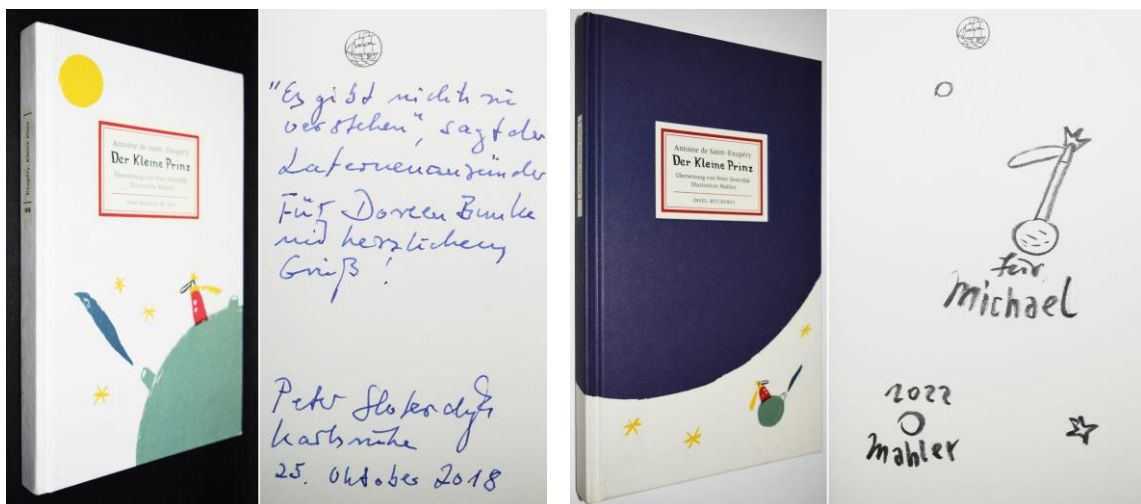 Antoine de Saint-Exupéry
Der Kleine Prinz
Übersetzung von Peter Sloterdijk
Illustration Mahler
"Es gibt nichts zu
verstehen", sagt der
Laternenanzünder
Für Doreen
mit herzlichem
Gruß!
Peter Sloterdijk
Karlsruhe
25. Oktober 2018
Antoine de Saint-Exupéry
Der Kleine Prinz
Übersetzung von Peter Sloterdijk
Illustration Mahler
INSEL-BÜCHEREI
für
Michael
2022
Mahler